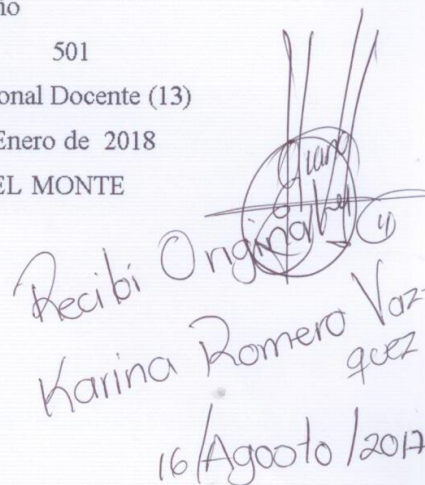 501
onal Docente (13)
Enero de 2018
EL MONTE
Recibí Original
Karina Romero Vaz-
quez
16/Agosto/2017